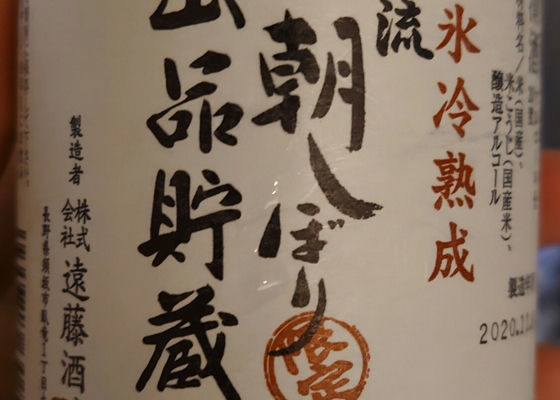 氷冷熟成
流
朝しぼり
限定
出品貯蔵
米(国産)、
米こうじ(国産米)、
醸造アルコール
2020.11
製造者
株式会社
遠藤酒
長野県須坂市